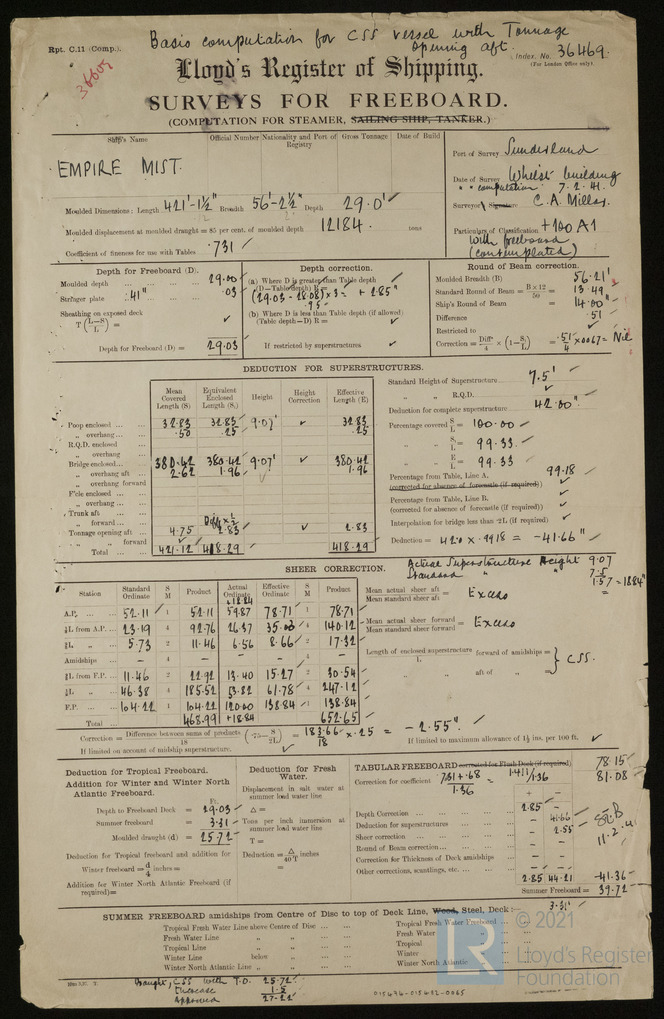 Rpt. C.11 (Comp.).
Basic computation for CSS vessel with Tonnage
Opening aft.
Index. No. 36469.
(For London Office only).
36609
Lloyd's Register of Shipping.
SURVEYS FOR FREEBOARD.
(COMPUTATION FOR STEAMER, SAILING SHIP, TANKER.)
Ship's Name Official Number Nationality and Port of Registry Gross Tonnage Date of Build
EMPIRE MIST.
Port of Survey Sunderland
Date of Survey Whilst building
" " computation 7.2.41.
Surveyor's Signature C.A. Millar.
Particulars of Classification +100 A1
with freeboard
(contemplated)
Moulded Dimensions: Length 421'-1½" Breadth 56'-2½" Depth 29.0'
Moulded displacement at moulded draught = 85 per cent. of moulded depth 12184. tons
Coefficient of fineness for use with Tables .731
Depth for Freeboard (D).
Moulded depth 29.00
Stringer plate .41" .03
Sheathing on exposed deck
T (L-S/L) =
Depth for Freeboard (D) = 29.03
Depth correction.
(a) Where D is greater than Table depth
(D-Table depth) R =
(29.03 - 28.08) × 3 = + 2.85"
(b) Where D is less than Table depth (if allowed)
(Table depth-D) R =
If restricted by superstructures
Round of Beam correction.
Moulded Breadth (B) 56.21'
Standard Round of Beam = B × 12/50 = 13.49
Ship's Round of Beam = 14.00"
Difference .51
Restricted to
Correction = Diff/4 × (1-S₁/L) = .51/4 × .0067 = Nil
DEDUCTION FOR SUPERSTRUCTURES.
Mean Covered Length (S) Equivalent Enclosed Length (S₁) Height Height Correction Effective Length (E)
Poop enclosed 32.83 32.83 9.07' 32.83
" overhang .50 .25 .25
R.Q.D. enclosed
" overhang
Bridge enclosed 380.42 380.42 9.07' 380.42
" overhang aft 2.62 1.96 1.96
" overhang forward
F'cle enclosed
" overhang
Trunk aft
" forward
Tonnage opening aft 4.75 2.83 2.83
" " forward
Total 421.12 418.29 418.29
Standard Height of Superstructure 7.5'
" " R.Q.D.
Deduction for complete superstructure 42.00"
Percentage covered S/L = 100.00
" " S₁/L = 99.33
" " E/L = 99.33
Percentage from Table, Line A. 99.18
(corrected for absence of forecastle (if required))
Percentage from Table, Line B.
(corrected for absence of forecastle (if required))
Interpolation for bridge less than .2L (if required)
Deduction = 42.0 × .9918 = -41.66"
SHEER CORRECTION.
Actual Superstructure Height 9.07
Standard " 7.5
1.57 = 18.84"
Station Standard Ordinate S M Product Actual Ordinate Effective Ordinate S M Product
+18.84
A.P. 52.11 1 52.11 59.87 78.71 1 78.71
⅙L from A.P. 23.19 4 92.76 26.37 35.03 4 140.12
⅓L " 5.73 2 11.46 6.56 8.66 2 17.32
Amidships - 4 - - - 4 -
⅓L from F.P. 11.46 2 22.92 13.40 15.27 2 30.54
⅙L " 46.38 4 185.52 53.82 61.78 4 247.12
F.P. 104.22 1 104.22 120.00 138.84 1 138.84
Total 468.99 +18.84 652.65
Mean actual sheer aft / Mean standard sheer aft = Excess
Mean actual sheer forward / Mean standard sheer forward = Excess
Length of enclosed superstructure forward of amidships = CSS.
L " aft of " =
Correction = Difference between sums of products/18 (.75 - S/2L) = 183.66/18 × .25 = -2.55".
If limited on account of midship superstructure.
If limited to maximum allowance of 1½ ins. per 100 ft.
Deduction for Tropical Freeboard.
Addition for Winter and Winter North Atlantic Freeboard.
Ft.
Depth to Freeboard Deck = 29.03
Summer freeboard = 3.31
Moulded draught (d) = 25.72
Deduction for Tropical freeboard and addition for
Winter freeboard = d/4 inches =
Addition for Winter North Atlantic Freeboard (if required) =
Deduction for Fresh Water.
Displacement in salt water at summer load water line
Δ =
Tons per inch immersion at summer load water line
T =
Deduction = Δ/40T inches
=
TABULAR FREEBOARD corrected for Flush Deck (if required) 78.15
Correction for coefficient .731 + .68/1.36 = 1.411/1.36 81.08
+ -
Depth Correction 2.85 -
Deduction for superstructures - 41.66
Sheer correction - 2.55
Round of Beam correction - -
Correction for Thickness of Deck amidships - -
Other corrections, scantlings, etc. - -
2.85 44.21 -41.36
Summer Freeboard = 39.72
11.2.41
3.31'
SUMMER FREEBOARD amidships from Centre of Disc to top of Deck Line, Wood, Steel, Deck :—
Tropical Fresh Water Line above Centre of Disc
Fresh Water Line " "
Tropical Line " "
Winter Line below "
Winter North Atlantic Line " "
Tropical Fresh Water Freeboard
Fresh Water "
Tropical "
Winter "
Winter North Atlantic "
Draught, CSS with T.O. 25.72
Increase 1.5
Approved 27.22
015476-015482-0065
© 2021
LR
Lloyd's Register
Foundation